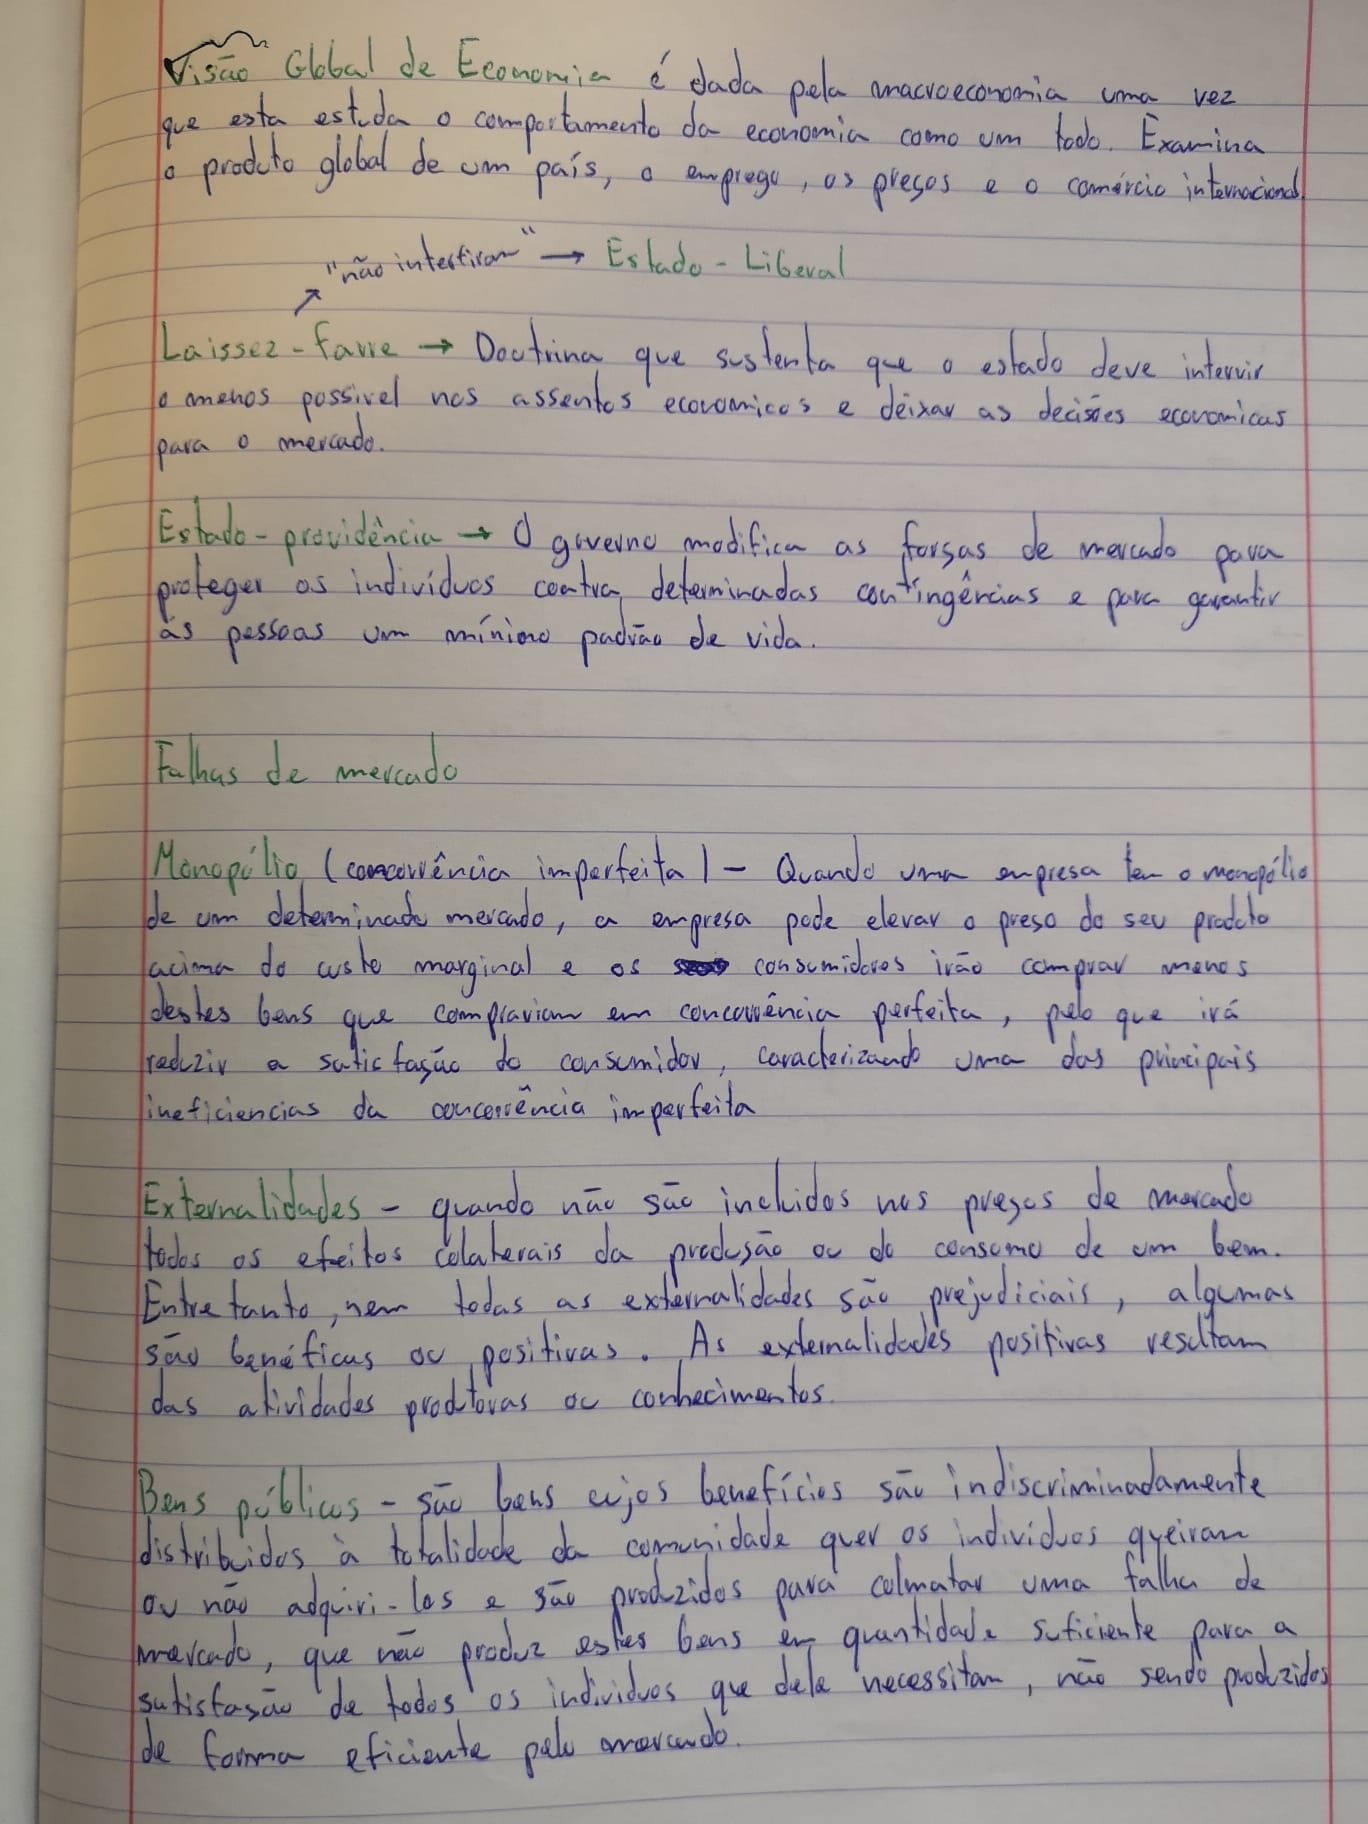 Visão Global de Economia é dada pela macroeconomia uma vez
que esta estuda o comportamento da economia como um todo. Examina
o produto global de um país, o emprego, os preços e o comércio internacional
"não interferir" → Estado-Liberal
↗
Laissez-faire → Doutrina que sustenta que o estado deve intervir
o menos possivel nos assentos economicos e deixar as decisões economicas
para o mercado.
Estado-providência → O governo modifica as forças de mercado para
proteger os indivíduos contra determinadas contingências e para garantir
ás pessoas um mínimo padrão de vida.
Falhas de mercado
Monopólio (concorrência imperfeita) - Quando uma empresa tem o monopólio
de um determinado mercado, a empresa pode elevar o preso do seu produto
acima do custo marginal e os consumidores irão comprar menos
destes bens que comprariam em concorrência perfeita, pelo que irá
reduzir a satisfação do consumidor, caracterizando uma das principais
ineficiencias da concorrência imperfeita
Externalidades - quando não são incluidos nos preços de mercado
todos os efeitos colaterais da produção ou do consumo de um bem.
Entretanto, nem todas as externalidades são prejudiciais, algumas
são benéficas ou positivas. As externalidades positivas resultam
das atividades produtoras ou conhecimentos.
Bens públicos - são bens cujos benefícios são indiscriminadamente
distribuidos à totalidade da comunidade quer os individuos queiram
ou não adquiri-los e são produzidos para colmatar uma falha de
mercado, que não produz estes bens em quantidade suficiente para a
satisfação de todos os individuos que dele necessitam, não sendo produzidos
de forma eficiente pelo mercado.